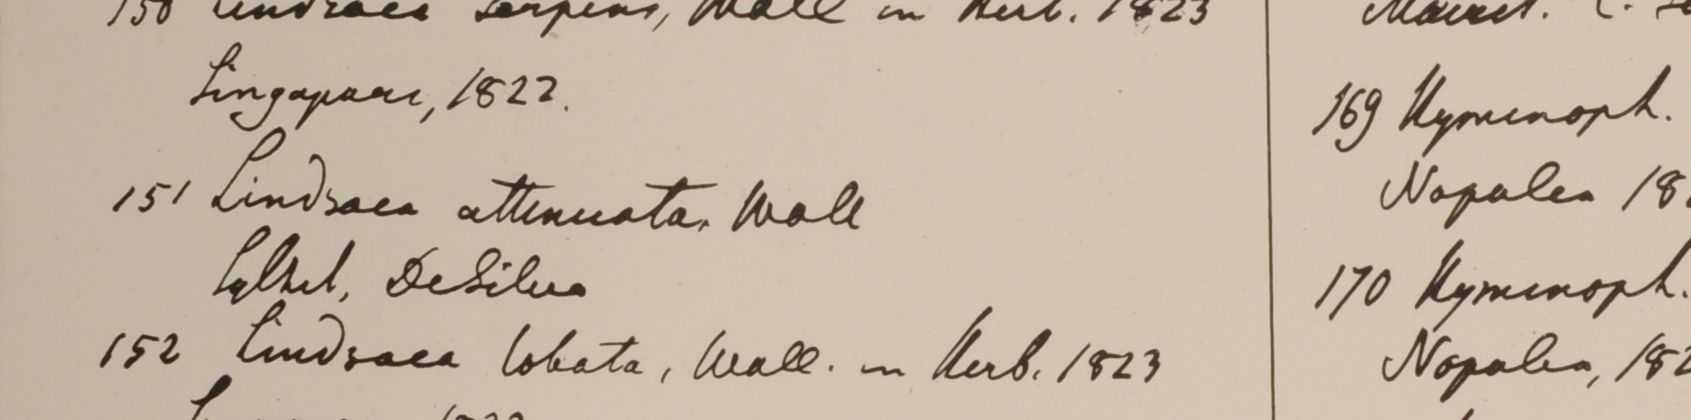 150 Lindsaea serpens, Wall in Herb. 1823
Singapore, 1822.
151 Lindsaea attenuata, Wall
Sylhet, DeSilva
152 Lindsaea lobata, Wall. in Herb. 1823
1822
169 Hymenoph.
Napalea 18
170 Hymenoph.
Napalea, 182